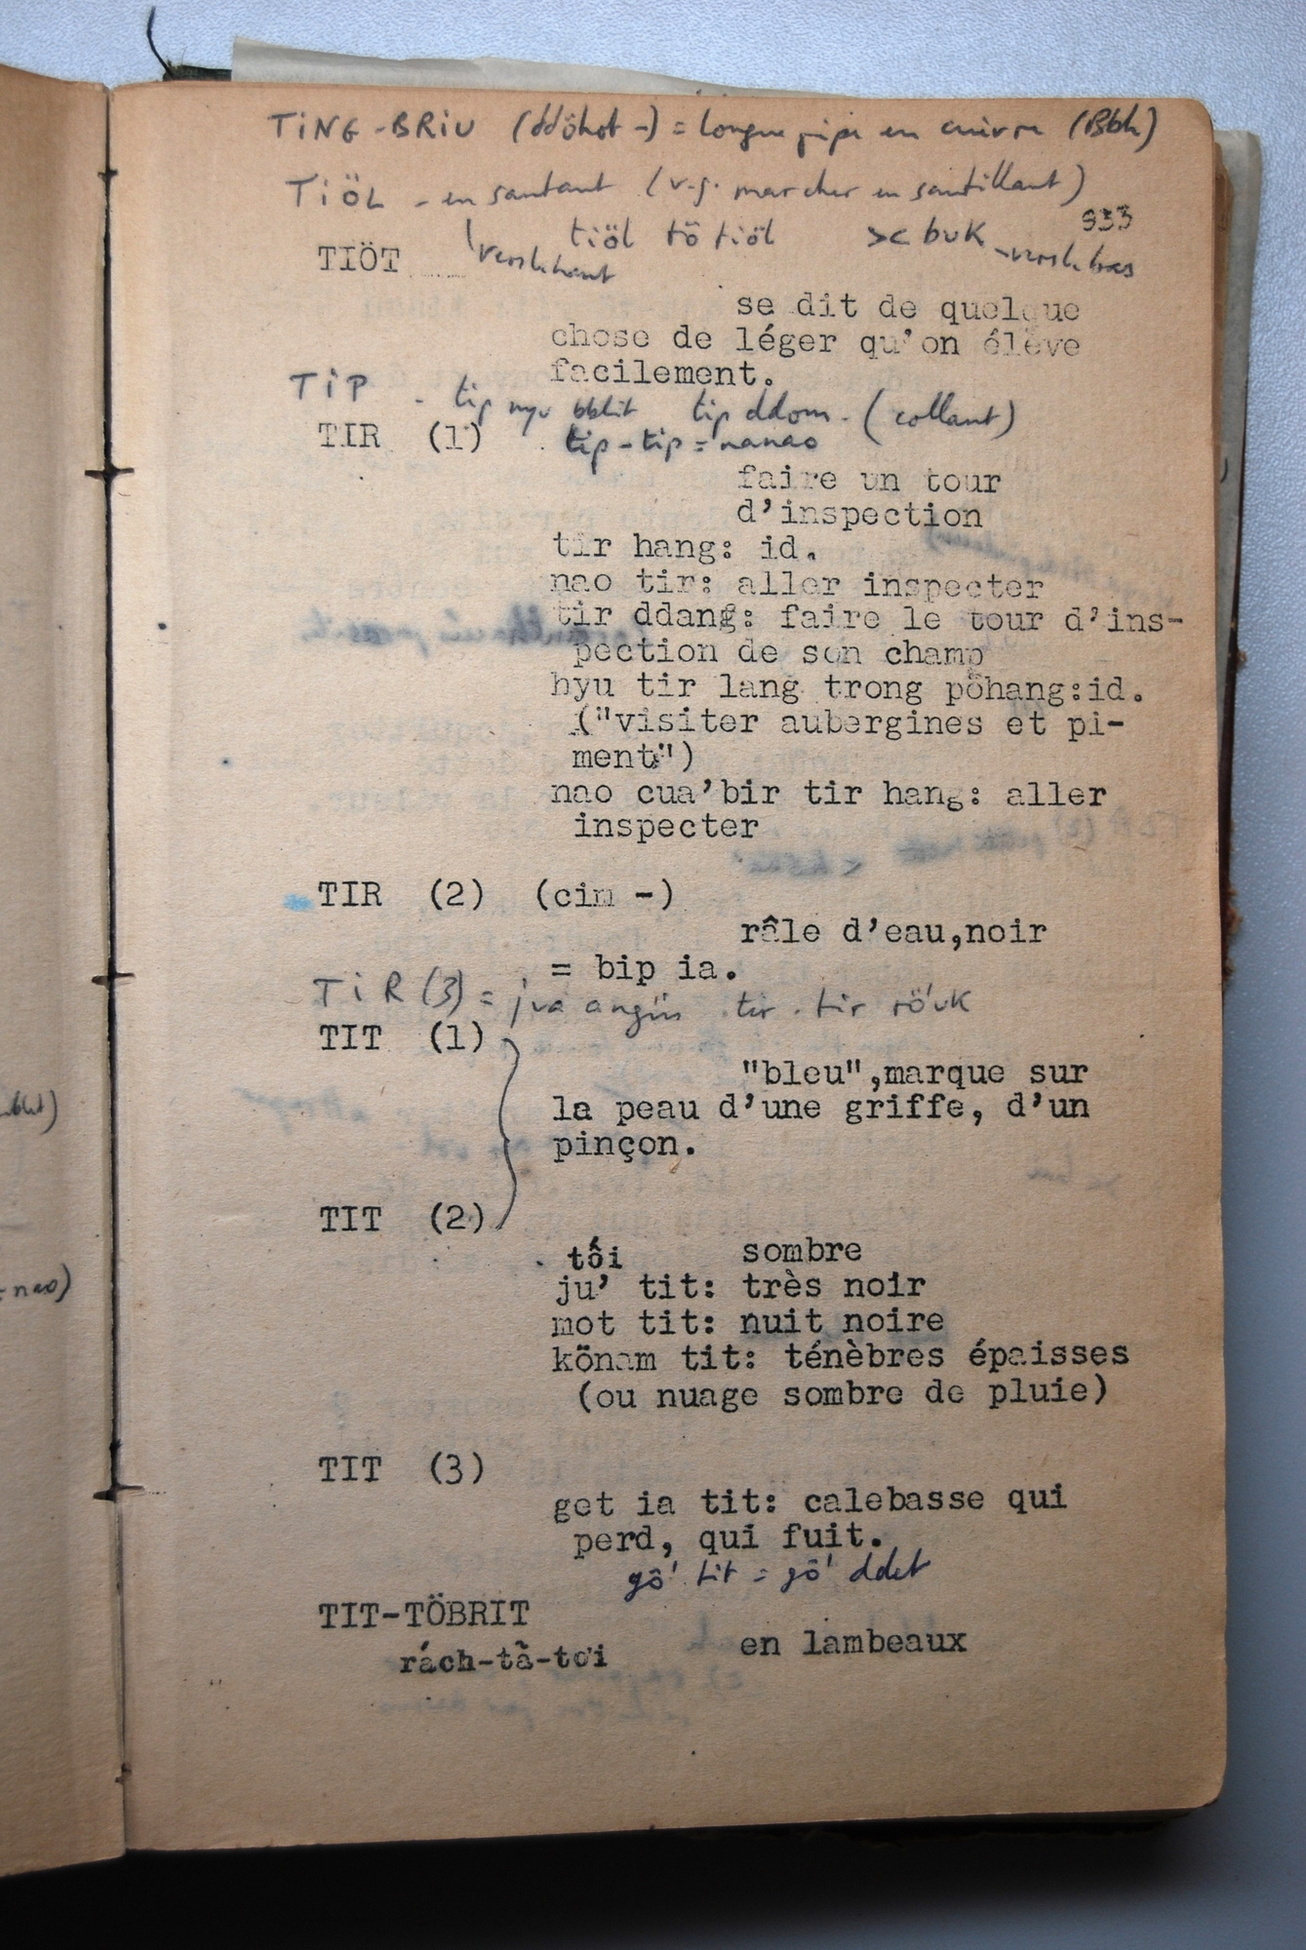 TiNG-BRiU (ddöhot -) = longue pipe en cuivre (Bbh)
TiÖL - en sautant (v.g. marcher en sautillant)
933
tiöl tö tiöl >< buK - vers le bas
vers le haut
TIÖT
se dit de quelque
chose de léger qu'on élève
facilement.
TiP - tip nyu bblit tip ddom - (collant)
TIR (1) tip-tip = nanao
faire un tour
d'inspection
tir hang: id.
nao tir: aller inspecter
tir ddang: faire le tour d'ins-
pection de son champ
hyu tir lang trong pöhang:id.
("visiter aubergines et pi-
ment")
nao cua'bir tir hang: aller
inspecter
TIR (2) (cim -)
râle d'eau,noir
= bip ia.
TiR (3) = jva angin tir. tir röuK
TIT (1)
"bleu",marque sur
la peau d'une griffe, d'un
pinçon.
TIT (2)
tối sombre
ju' tit: très noir
mot tit: nuit noire
könam tit: ténèbres épaisses
(ou nuage sombre de pluie)
TIT (3)
get ia tit: calebasse qui
perd, qui fuit.
gô' tit = gô' ddet
TIT-TÖBRIT
rách-tả-tơi en lambeaux